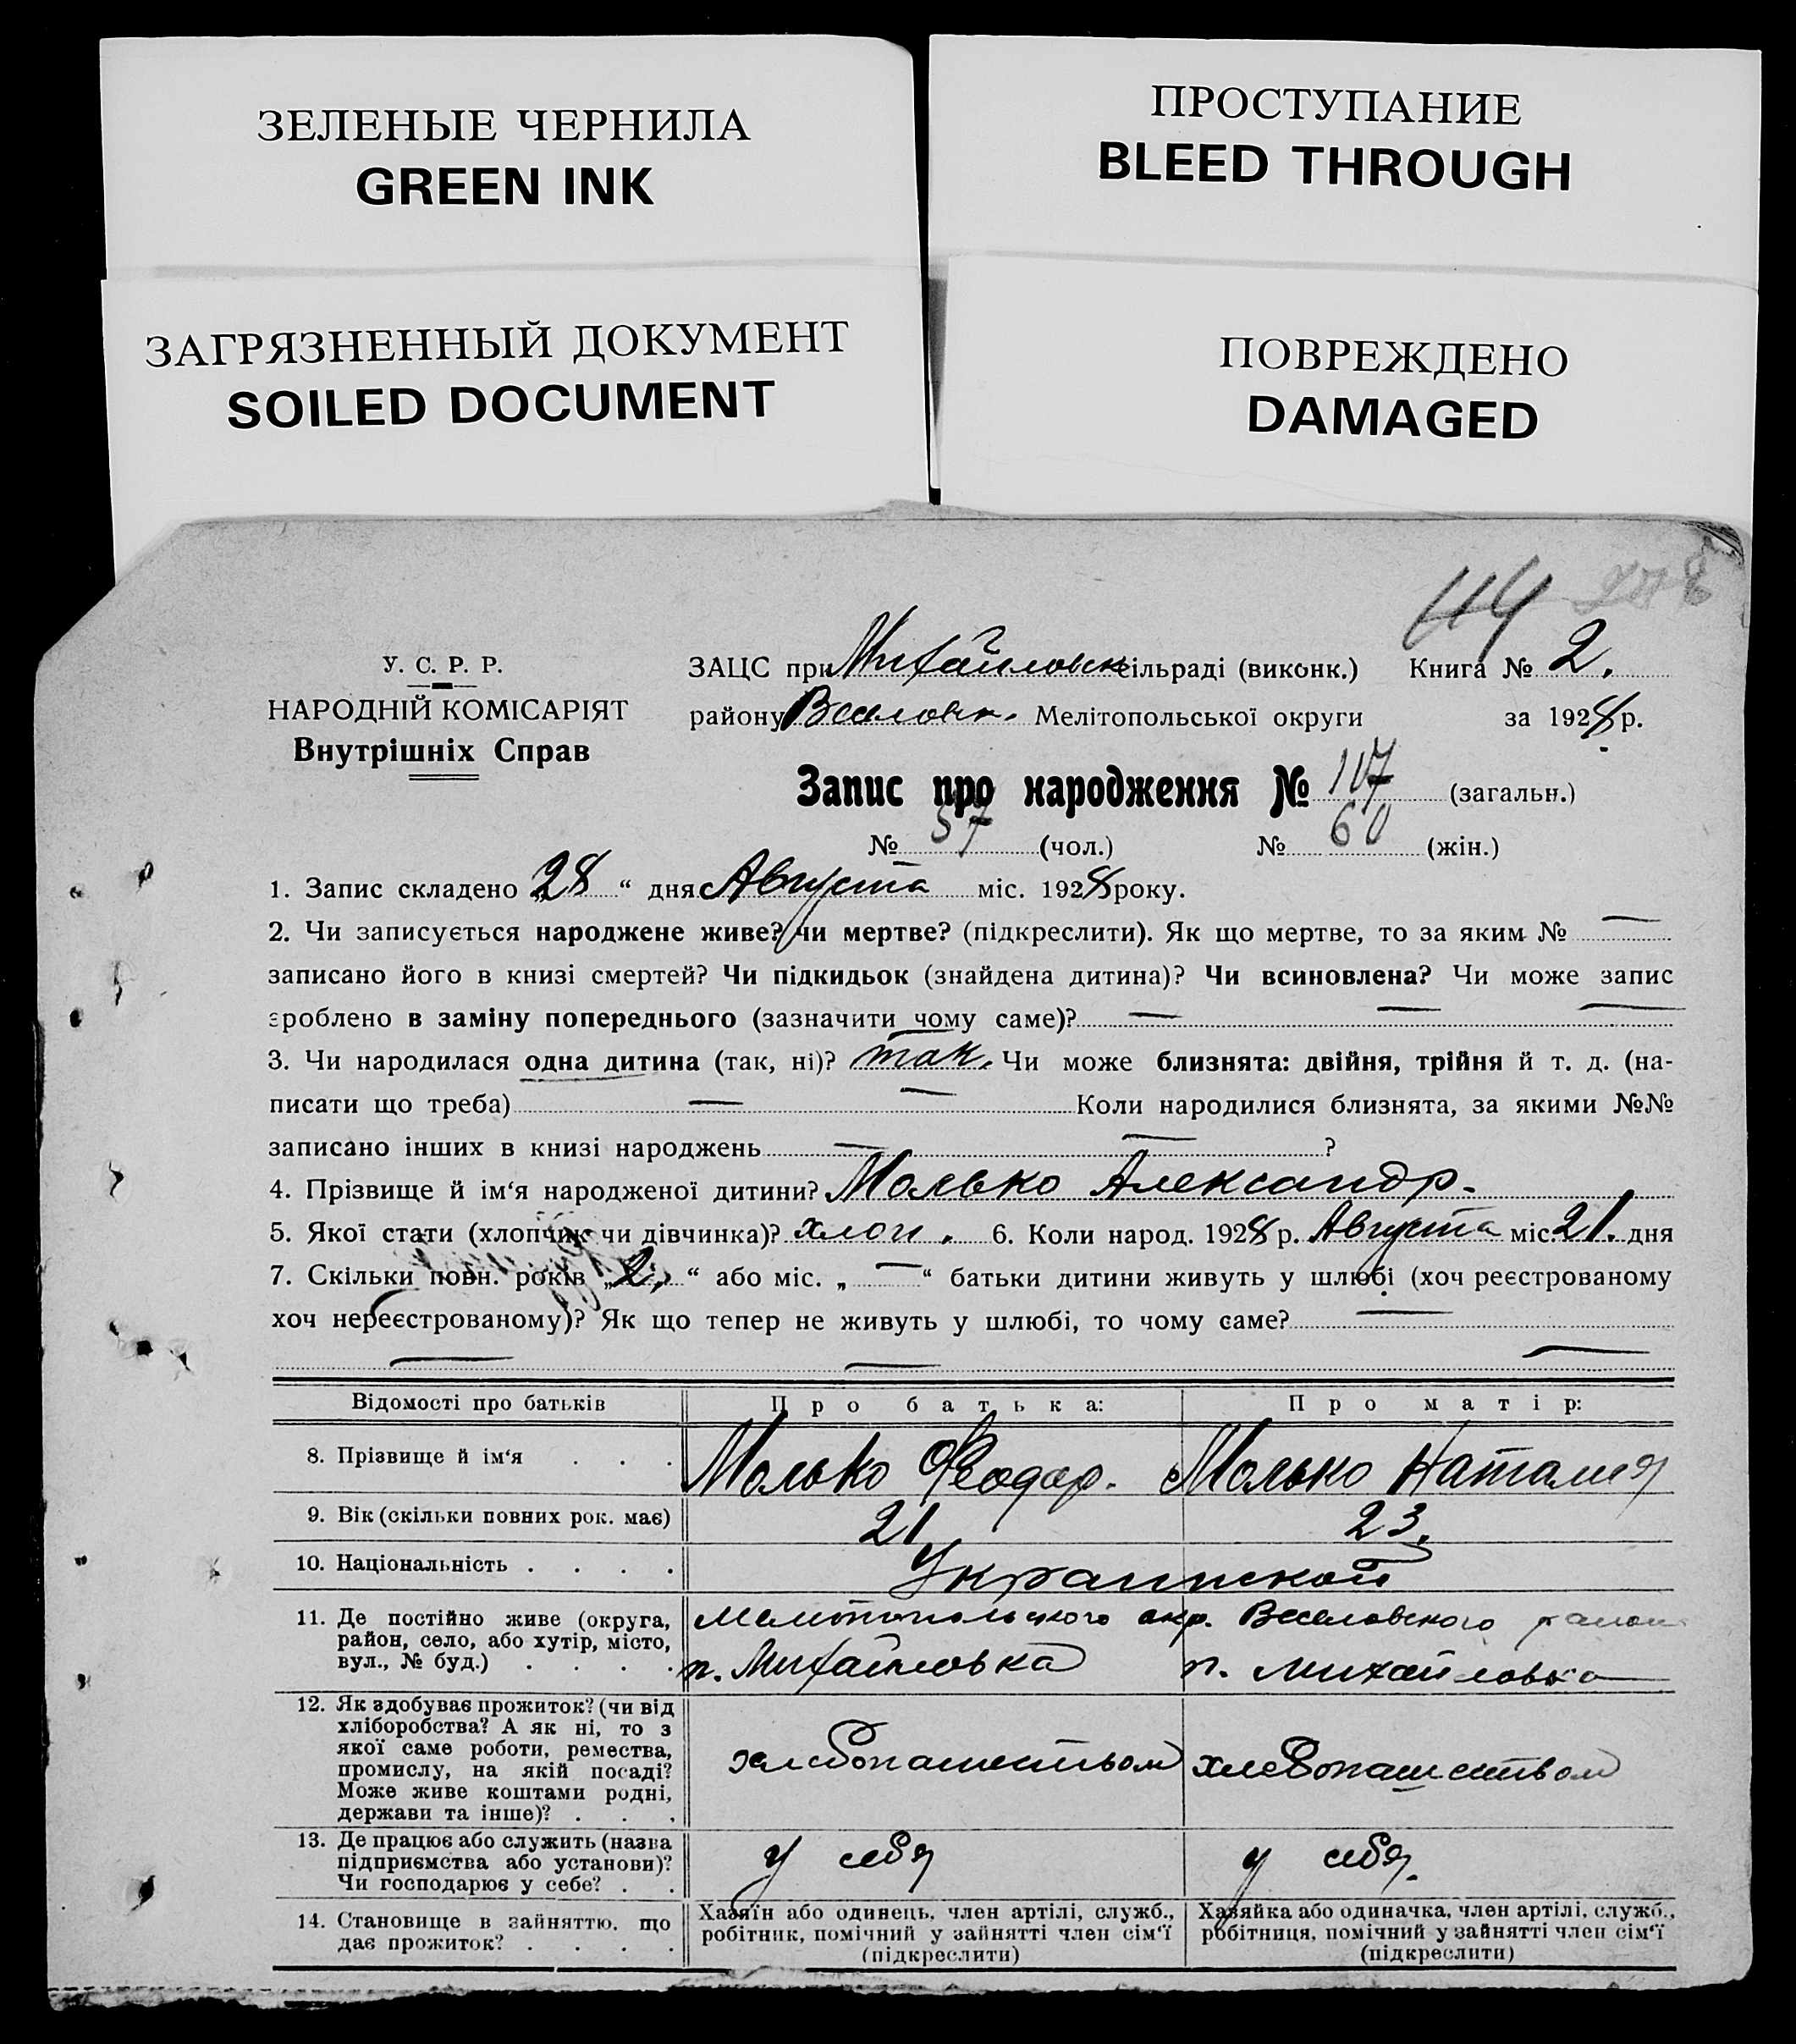 ЗЕЛЕНЫЕ ЧЕРНИЛА
GREEN INK
ПРОСТУПАНИЕ
BLEED THROUGH
ЗАГРЯЗНЕННЫЙ ДОКУМЕНТ
SOILED DOCUMENT
ПОВРЕЖДЕНО
DAMAGED
114
У. С. Р. Р.
НАРОДНІЙ КОМІСАРІЯТ
Внутрішніх Справ
ЗАЦС при Михайловск сільраді (виконк.) Книга № 2.
району Веселовк. Мелітопольської округи за 1928 р.
Запис про народження № 117 (загальн.)
№ 57 (чол.) № 60 (жін.)
1. Запис складено „28“ дня Августа міс. 1928 року.
2. Чи записується народжене живе? чи мертве? (підкреслити). Як що мертве, то за яким № —
записано його в книзі смертей? Чи підкидьок (знайдена дитина)? Чи всиновлена? Чи може запис
зроблено в заміну попереднього (зазначити чому саме)? — — —
3. Чи народилася одна дитина (так, ні)? так. Чи може близнята: двійня, трійня й т. д. (на-
писати що треба) — — Коли народилися близнята, за якими №№
записано інших в книзі народжень — — ?
4. Прізвище й ім‘я народженої дитини? Молько Александр.
5. Якої стати (хлопчик чи дівчинка)? хлоп. 6. Коли народ. 1928 р. Августа міс 21. дня
7. Скільки повн. років „2,“ або міс. „—“ батьки дитини живуть у шлюбі (хоч реєстрованому
хоч нереєстрованому)? Як що тепер не живуть у шлюбі, то чому саме? —
— — —
Відомості про батьків Про батька: Про матір:
8. Прізвище й ім‘я . . . Молько Феодор. Молько Наталия
9. Вік (скільки повних рок. має) 21 23.
10. Національність . . . . Украинской
11. Де постійно живе (округа,
район, село, або хутір, місто,
вул., № буд.) . . . .
окр. Веселовского
п. Михайловка п. Михайловка
12. Як здобуває прожиток? (чи від
хліборобства? А як ні, то з
якої саме роботи, ремества,
промислу, на якій посаді?
Може живе коштами родні,
держави та інше)? . . .
хлебопашеством хлебопашеством
13. Де працює або служить (назва
підприємства або установи)?
Чи господарює у себе? . .
у себя у себя.
14. Становище в зайняттю, що
дає прожиток? . . . .
Хазяїн або одинець, член артілі, служб.,
робітник, помічний у зайнятті член сім‘ї
(підкреслити)
Хазяйка або одиначка, член артілі, служб.,
робітниця, помічний у зайнятті член сім‘ї
(підкреслити)